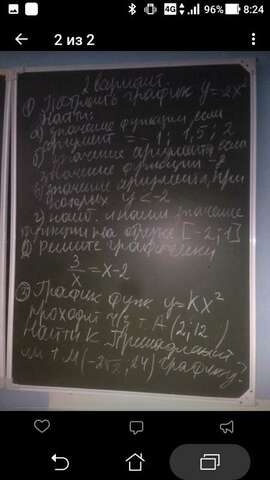 4G
96%
8:24
2 из 2
2 вариант.
① Построить график y=2x²
Найти:
а) значение функции, если
аргумент = 1; 1,5; 2
б) значение аргумента, если
значение функции
в) значение аргумента, при
которых y < -2
г) наиб. и наим. значение
функции на отрезке [-2; 1]
② Решите графически
3/x = x-2
③ График функ y=Kx²
проходит ч/з т. А(2; 12)
Найти К. Принадлежит
ли т. М(-2√2; 24) графику?